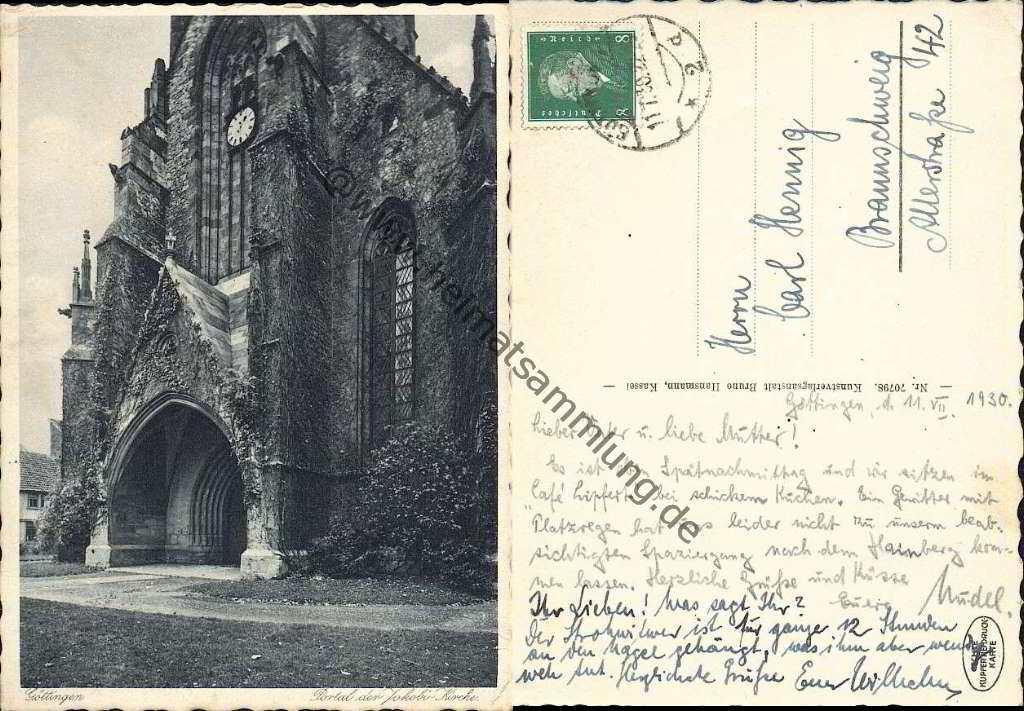 Göttingen
Portal der Jakobi-Kirche.
@www.heimatsammlung.de
8 Deutsches Reich 8
11.7.30
Herrn
Carl Hennig
Braunschweig
Allerstraße 42
Nr. 70798. Kunstverlagsanstalt Bruno Hansmann, Kassel
Göttingen, d. 11. VII. 1930.
Lieber Vater u. liebe Mutter!
Es ist Spätnachmittag und wir sitzen im
"Café Lipfert" bei schickem Kuchen. Ein Gewitter mit
Platzregen hat uns leider nicht zu unserm beab-
sichtigten Spaziergang nach dem Hainberg kom-
men lassen. Herzliche Grüße und Küsse
Eure Nudel.
Ihr Lieben! Was sagt Ihr?
Der Strohwitwer ist für ganze 12 Stunden
an den Nagel gehängt, was ihm aber wenig
weh tut. Herzlichste Grüße Euer Wilhelm
ECHTE
KUPFERTIEFDRUCK-
KARTE